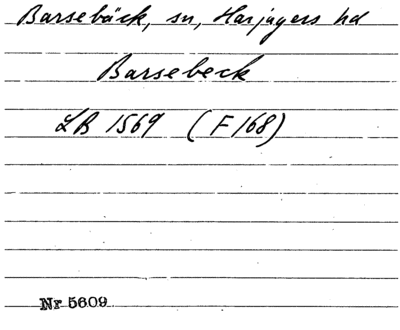 Barsebäck, sn, Harjagers hd
Barsebeck
LB 1569 (F168)
Nr 5609